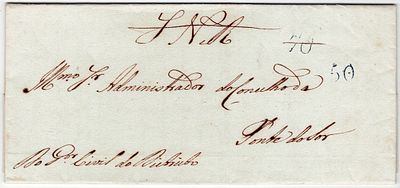 S N R
70
50
Illmo Sr Administrador do Concelho da
Ponte do Sor
Do Gor Civil do Districto